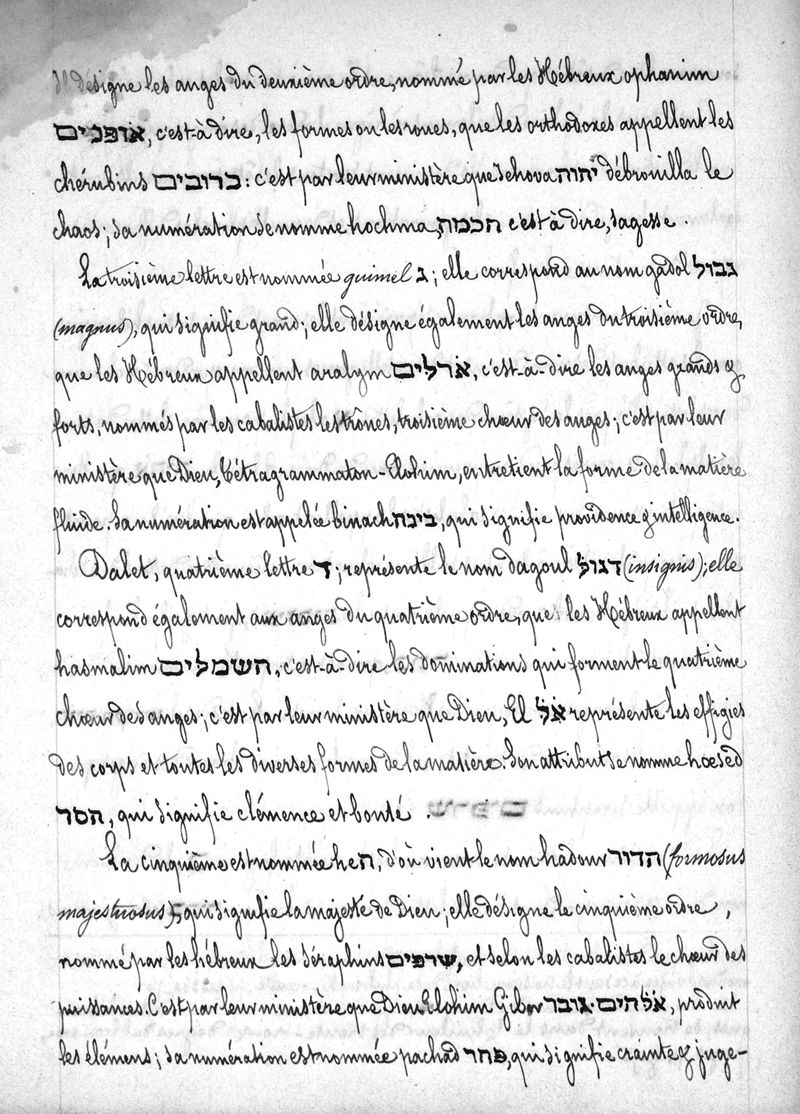 Il désigne les anges du deuxième ordre, nommé par les Hébreux ophanim
אופנים, c'est-à dire, les formes ou les roues, que les orthodoxes appellent les
chérubins כרובים : c'est par leur ministère que Jehova יהוה débrouilla le
chaos ; sa numération se nomme hochma, חכמה c'est à dire, sagesse.
La troisième lettre est nommée guimel ג ; elle correspond au nom gadol גבול
(magnus), qui signifie grand ; elle désigne également les anges du troisième ordre,
que les Hébreux appellent aralym ארלים, c'est-à-dire les anges grands &
forts, nommés par les cabalistes les trônes, troisième chœur des anges ; c'est par leur
ministère que Dieu, Tétragrammaton-Elohim, entretient la forme de la matière
fluide. Sa numération est appelée binach בינה, qui signifie providence & intelligence.
Dalet, quatrième lettre ד ; représente le nom dagoul דגול (insignis) ; elle
correspond également aux anges du quatrième ordre, que les Hébreux appellent
hasmalim חשמלים, c'est-à-dire les dominations qui forment le quatrième
chœur des anges ; c'est par leur ministère que Dieu, El אל représente les effigies
des corps et toutes les diverses formes de la matière. Son attribut se nomme hœsed
הסר, qui signifie clémence et bonté.
La cinquième est nommée he ה, d'où vient le nom hadour הדור (formosus
majestuosus), qui signifie la majesté de Dieu ; elle désigne le cinquième ordre,
nommé par les hébreux les séraphins שרפים, et selon les cabalistes le chœur des
puissances. C'est par leur ministère que Dieu Elohim Gibor אלהים גובר, produit
les élémens ; sa numération est nommée pachad פחר, qui signifie crainte & juge-